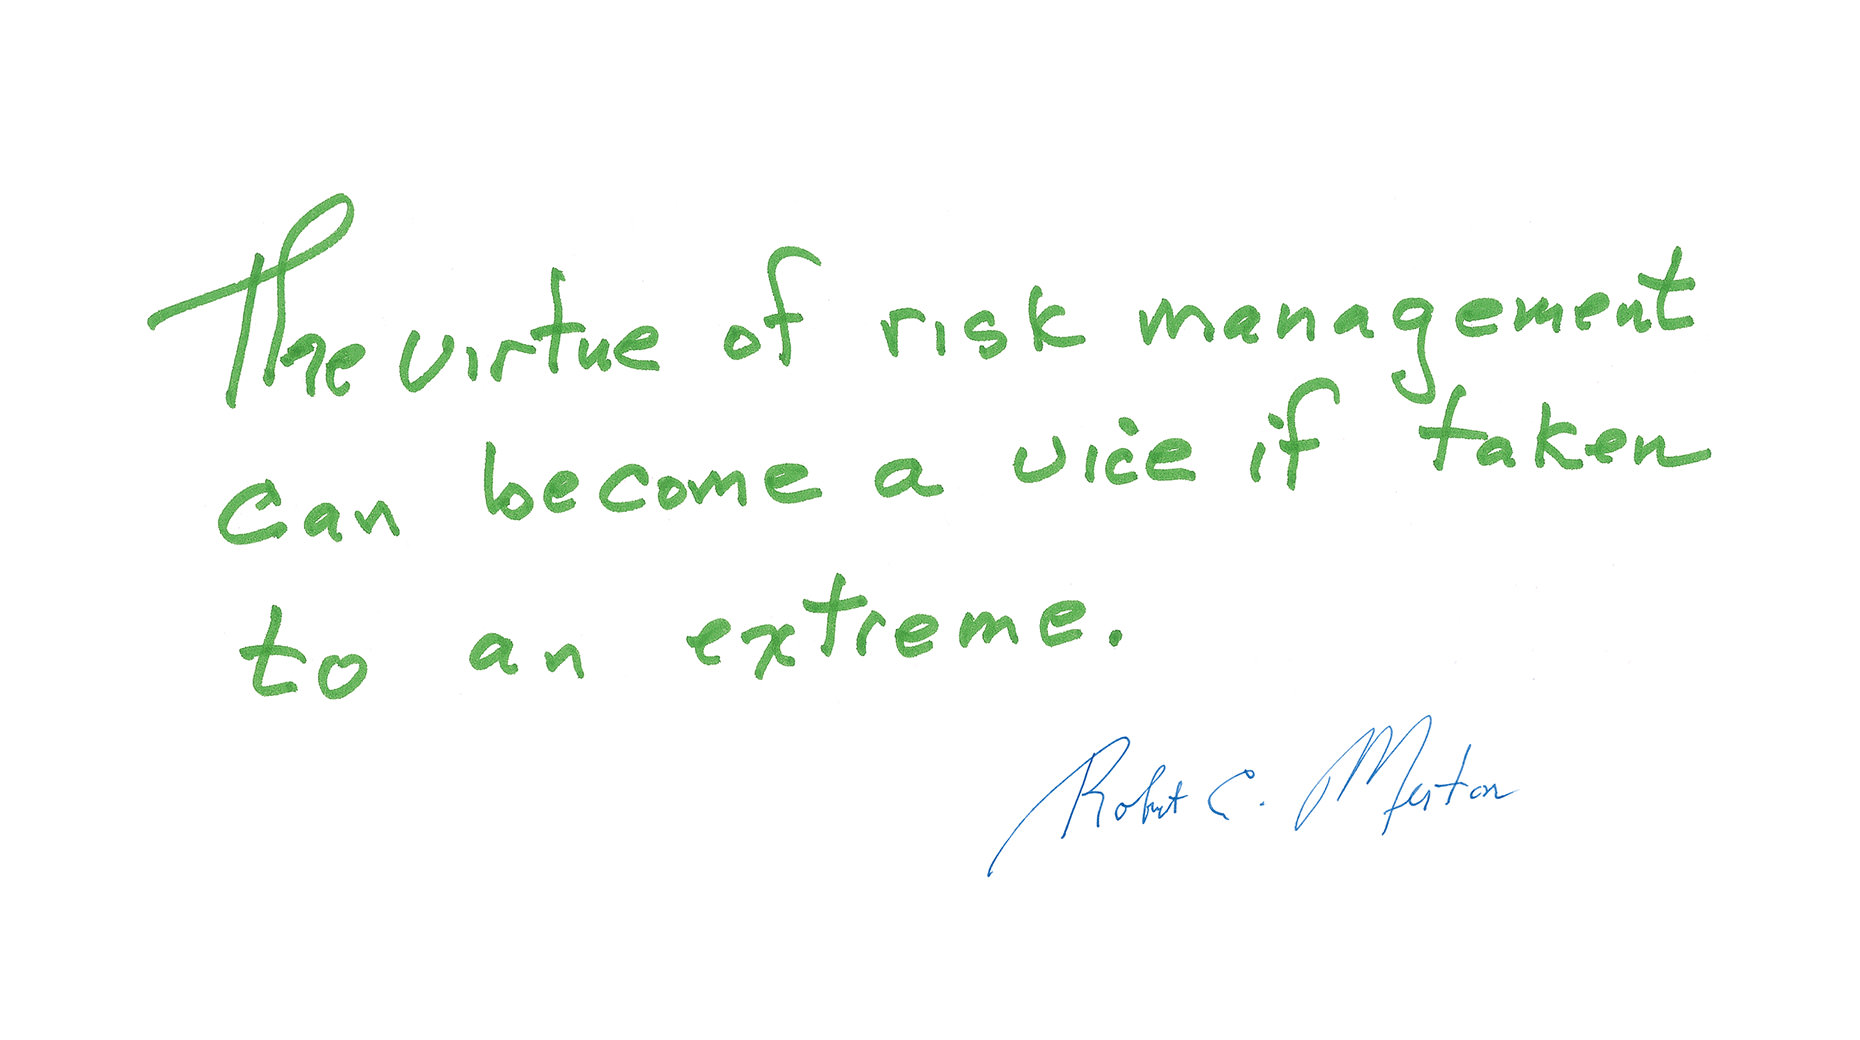 The virtue of risk management
can become a vice if taken
to an extreme.
Robert C. Merton